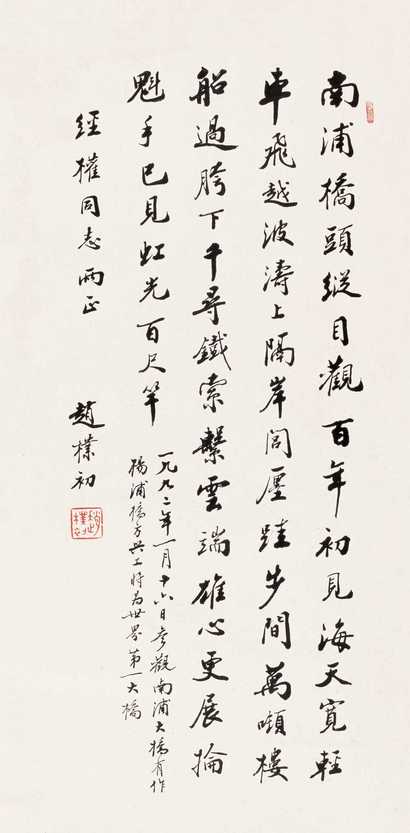 南浦橋頭縱目觀百年初見海天寬輕
車飛越波濤上隔岸閭廛跬步間萬噸樓
船過胯下千尋鐵索繫雲端雄心更展掄
魁手已見虹光百尺竿
一九九二年一月十六日參觀南浦大橋有作
楊浦橋方興工將為世界第一大橋
經權同志兩正
趙樸初